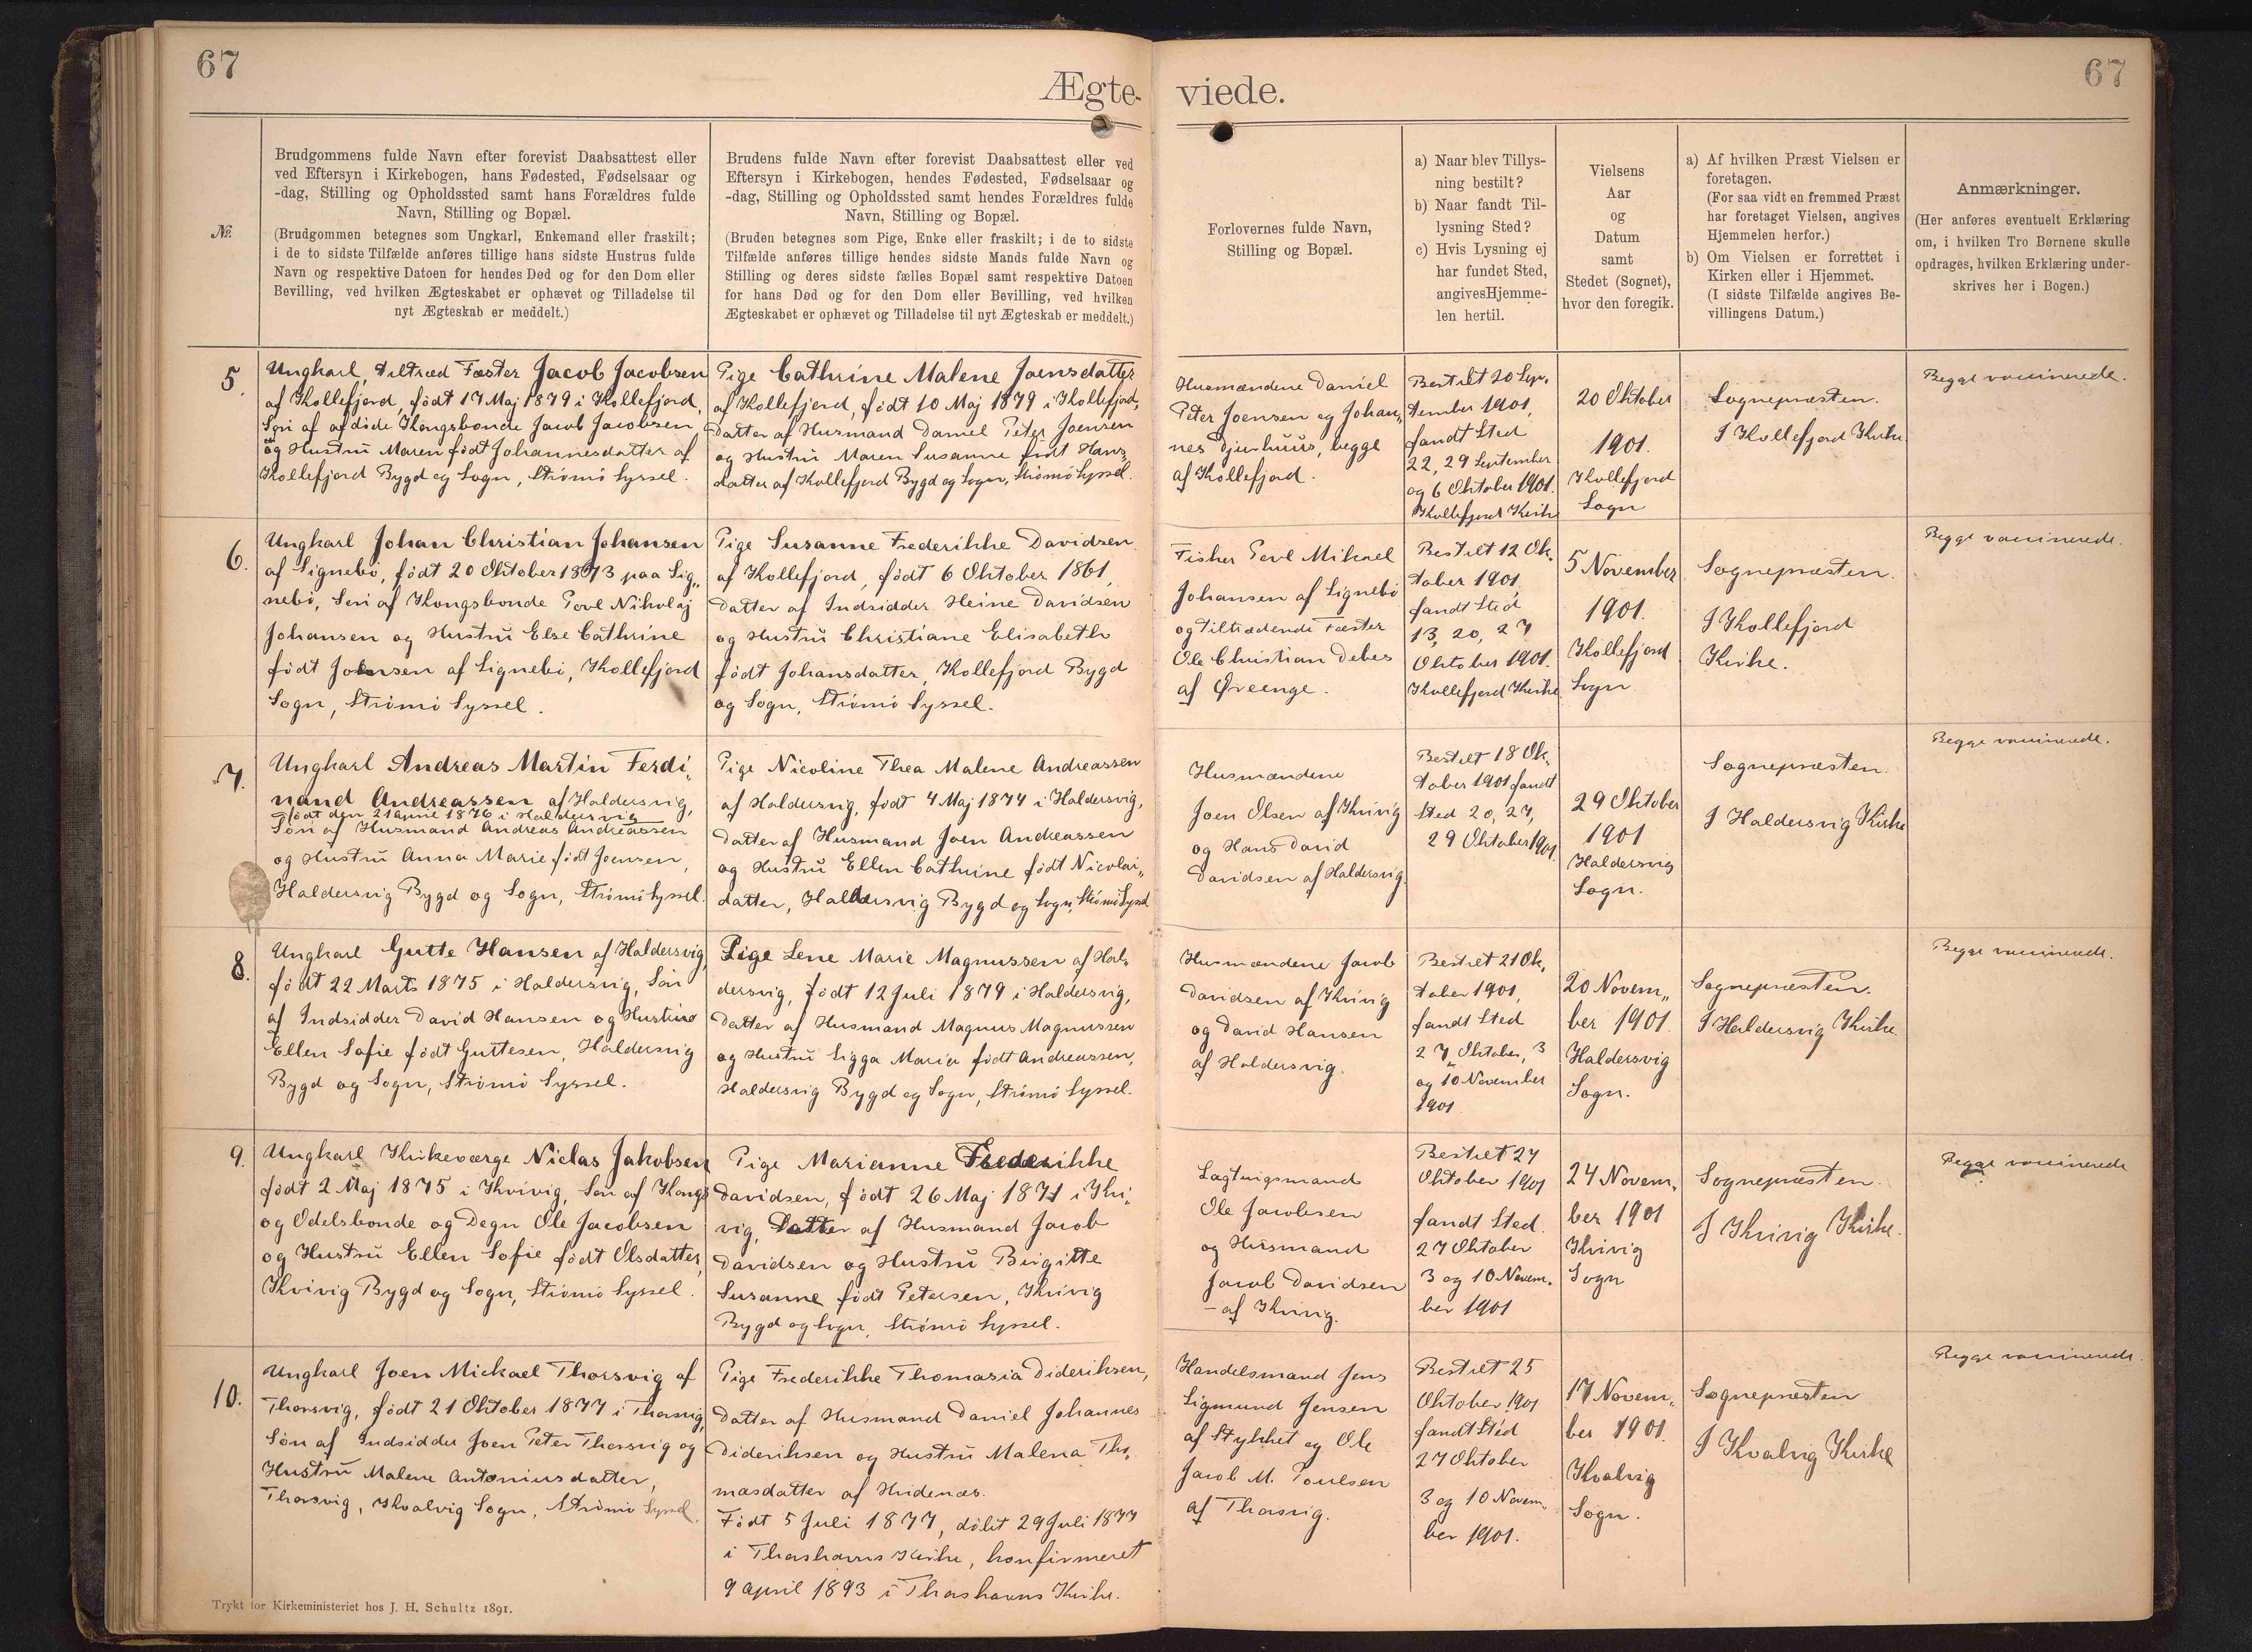 67
67
Ægte-
viede.
№.
Brudgommens fulde Navn efter forevist Daabsattest eller
ved Eftersyn i Kirkebogen, hans Fødested, Fødselsaar og
-dag, Stilling og Opholdssted samt hans Forældres fulde
Navn, Stilling og Bopæl.
(Brudgommen betegnes som Ungkarl, Enkemand eller fraskilt;
i de to sidste Tilfælde anføres tillige hans sidste Hustrus fulde
Navn og respektive Datoen for hendes Død og for den Dom eller
Bevilling, ved hvilken Ægteskabet er ophævet og Tilladelse til
nyt Ægteskab er meddelt.)
Brudens fulde Navn efter forevist Daabsattest eller ved
Eftersyn i Kirkebogen, hendes Fødested, Fødselsaar og
-dag, Stilling og Opholdssted samt hendes Forældres fulde
Navn, Stilling og Bopæl.
(Bruden betegnes som Pige, Enke eller fraskilt; i de to sidste
Tilfælde anføres tillige hendes sidste Mands fulde Navn og
Stilling og deres sidste fælles Bopæl samt respektive Datoen
for hans Død og for den Dom eller Bevilling, ved hvilken
Ægteskabet er ophævet og Tilladelse til nyt Ægteskab er meddelt.)
Forlovernes fulde Navn,
Stilling og Bopæl.
a) Naar blev Tillys-
ning bestilt?
b) Naar fandt Til-
lysning Sted?
c) Hvis Lysning ej
har fundet Sted,
angives Hjemme-
len hertil.
Vielsens
Aar
og
Datum
samt
Stedet (Sognet),
hvor den foregik.
a) Af hvilken Præst Vielsen er
foretagen.
(For saa vidt en fremmed Præst
har foretaget Vielsen, angives
Hjemmelen herfor.)
b) Om Vielsen er forrettet i
Kirken eller i Hjemmet.
(I sidste Tilfælde angives Be-
villingens Datum.)
Anmærkninger.
(Her anføres eventuelt Erklæring
om, i hvilken Tro Børnene skulle
opdrages, hvilken Erklæring under-
skrives her i Bogen.)
5.
Ungkarl, Tiltræd Fæster Jacob Jacobsen
af Kollefjord, født 17 Maj 1879 i Kollefjord,
Søn af afdøde Kongsbonde Jacob Jacobsen
og Hustru Maren født Johannesdatter af
Kollefjord Bygd og Sogn, Strømø Syssel.
Pige Cathrine Malene Joensdatter
af Kollefjord, født 10 Maj 1879 i Kollefjord,
Datter af Husmand Daniel Peter Joensen
og Hustru Maren Susanne født Hans„
datter af Kollefjord Bygd og Sogn, Strømø Syssel.
Husmændene Daniel
Peter Joensen og Johan„
nes Djurhuus, begge
af Kollefjord.
Bestilt 20 Sep„
tember 1901,
fandt Sted
22, 29 September
og 6 Oktober 1901.
Kollefjord Kirke
20 Oktober
1901.
Kollefjord
Sogn
Sognepræsten.
I Kollefjord Kirke
Begge vaccinerede.
6.
Ungkarl Johan Christian Johansen
af Signebø, født 20 Oktober 1873 paa Sig„
nebø, Søn af Kongsbonde Povl Nikolaj
Johansen og Hustru Else Cathrine
født Joensen af Signebø, Kollefjord
Sogn, Strømø Syssel.
Pige Susanne Frederikke Davidsen
af Kollefjord, født 6 Oktober 1861,
Datter af Indsidder Heine Davidsen
og Hustru Christiane Elisabeth
født Johansdatter, Kollefjord Bygd
og Sogn, Strømø Syssel.
Fisker Povl Mikael
Johansen af Signebø
og Tiltrædende Fæster
Ole Christian Debes
af Øreenge.
Bestilt 12 Ok„
tober 1901,
fandt Sted
13, 20, 27
Oktober 1901.
Kollefjord Kirke
5 November
1901.
Kollefjord
Sogn
Sognepræsten.
I Kollefjord
Kirke.
Begge vaccinerede.
7.
Ungkarl Andreas Martin Ferdi„
nand Andreassen af Haldersvig,
født den 21 Juni 1876 i Haldersvig
Søn af Husmand Andreas Andreassen
og Hustru Anna Marie født Joensen,
Haldersvig Bygd og Sogn, Strømø Syssel.
Pige Nicoline Thea Malene Andreassen
af Haldersvig, født 4 Maj 1874 i Haldersvig,
Datter af Husmand Joen Andreassen
og Hustru Ellen Cathrine født Nicolai„
datter, Haldersvig Bygd og Sogn, Strømø Syssel
Husmændene
Joen Olsen af Kvivig
og Hans David
Davidsen af Haldersvig.
Bestilt 18 Ok„
tober 1901 fandt
Sted 20, 27,
29 Oktober 1901.
29 Oktober
1901
Haldersvig
Sogn.
Sognepræsten.
I Haldersvig Kirke
Begge vaccinerede.
8.
Ungkarl Gutte Hansen af Haldersvig,
født 22 Marts 1875 i Haldersvig, Søn
af Indsidder David Hansen og Hustru
Ellen Sofie født Guttesen, Haldersvig
Bygd og Sogn, Strømø Syssel.
Pige Lene Marie Magnussen af Hal„
dersvig, født 12 Juli 1879 i Haldersvig,
Datter af Husmand Magnus Magnussen
og Hustru Sigga Maria født Andreassen,
Haldersvig Bygd og Sogn, Strømø Syssel.
Husmændene Jacob
Davidsen af Kvivig
og David Hansen
af Haldersvig.
Bestilt 21 Ok„
tober 1901,
fandt Sted
27 Oktober, 3
og 10 November
1901
20 Novem„
ber 1901.
Haldersvig
Sogn.
Sognepræsten.
I Haldersvig Kirke.
Begge vaccinerede.
9.
Ungkarl Kirkeværge Niclas Jakobsen
født 2 Maj 1875 i Kvivig, Søn af Kongs
og Odelsbonde og Degn Ole Jacobsen
og Hustru Ellen Sofie født Olsdatter,
Kvivig Bygd og Sogn, Strømø Syssel.
Pige Marianne Frederikke
Davidsen, født 26 Maj 1871 i Kvi„
vig, Datter af Husmand Jacob
Davidsen og Hustru Birgitte
Susanne født Petersen, Kvivig
Bygd og Sogn, Strømø Syssel.
Lagtingsmand
Ole Jacobsen
og Husmand
Jacob Davidsen
- af Kvivig.
Bestilt 24
Oktober 1901
fandt Sted.
27 Oktober
3 og 10 Novem„
ber 1901
24 Novem„
ber 1901
Kvivig
Sogn
Sognepræsten.
I Kvivig Kirke.
Begge vaccinerede
10.
Ungkarl Joen Mickael Thorsvig af
Thorsvig, født 21 Oktober 1877 i Thorsvig,
Søn af Indsidder Joen Peter Thorsvig og
Hustru Malene Antoniusdatter,
Thorsvig, Kvalvig Sogn, Strømø Syssel.
Pige Frederikke Thomasia Dideriksen,
Datter af Husmand Daniel Johannes
Dideriksen og Hustru Malena Tho„
masdatter af Hvidenæs.
Født 5 Juli 1877, døbt 29 Juli 1877
i Thorshavns Kirke, konfirmeret
9 April 1893 i Thorshavns Kirke.
Handelsmand Jens
Sigmund Jensen
af Stykket og Ole
Jacob M. Poulsen
af Thorsvig.
Bestilt 25
Oktober 1901
fandt Sted
27 Oktober
3 og 10 Novem„
ber 1901.
17 Novem„
ber 1901.
Kvalvig
Sogn.
Sognepræsten
I Kvalvig Kirke
Begge vaccinerede.
Trykt for Kirkeministeriet hos J. H. Schultz 1891.